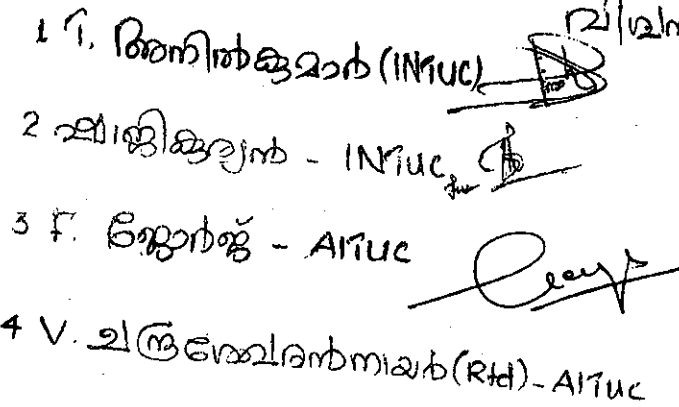 വിശ്വന
1 T. അനിൽകുമാർ (INTUC)
2 ഷാജികുര്യൻ - INTUC
3 F. ജോർജ് - AITUC
4 V. ചന്ദ്രശേഖരൻനായർ (Rtd) - AITUC